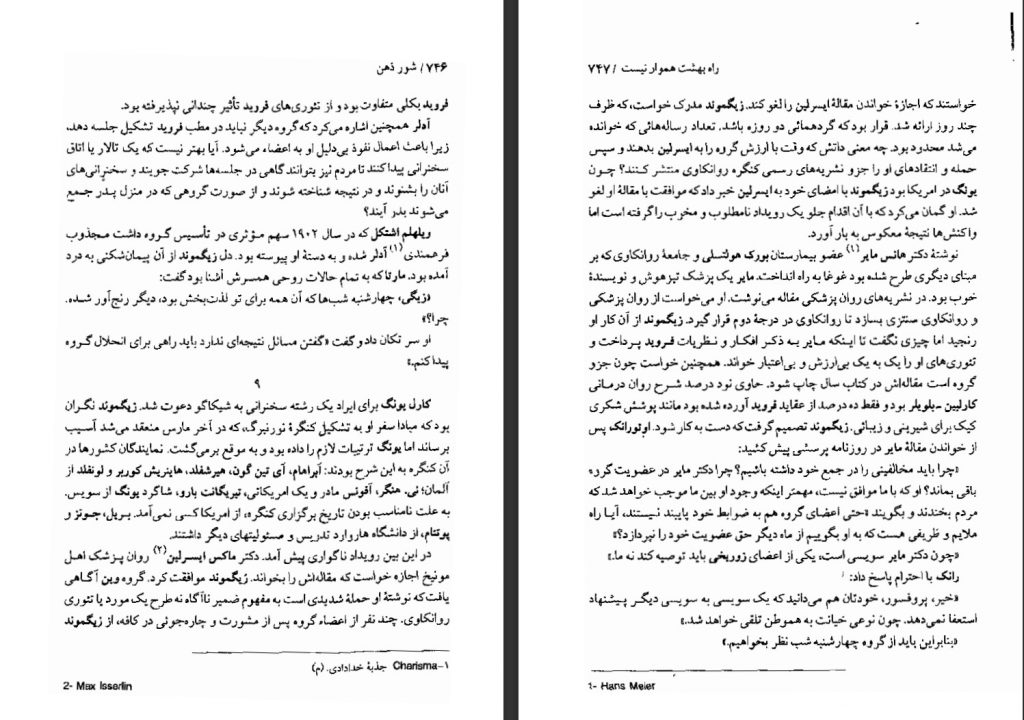 ۷۴۶/ شور ذهن
فروید بکلی متفاوت بود و از تئوری‌های فروید تأثیر چندانی نپذیرفته بود.
آدلر همچنین اشاره می‌کرد که گروه دیگر نباید در مطب فروید تشکیل جلسه دهد،
زیرا باعث اعمال نفوذ بی‌دلیل او به اعضاء می‌شود. آیا بهتر نیست که یک تالار یا اتاق
سخنرانی پیدا کنند تا مردم نیز بتوانند گاهی در جلسه‌ها شرکت جویند و سخنرانی‌های
آنان را بشنوند و در نتیجه شناخته شوند و از صورت گروهی که در منزل پدر جمع
می‌شوند بدر آیند؟
ویلهلم اشتکل که در سال ۱۹۰۲ سهم مؤثری در تأسیس گروه داشت مجذوب
فرهمندی(۱) آدلر شده و به دستهٔ او پیوسته بود. دل زیگموند از آن پیمان‌شکنی به درد
آمده بود. مارتا که به تمام حالات روحی همسرش آشنا بود گفت:
«زیگی، چهارشنبه شب‌ها که آن همه برای تو لذت‌بخش بود، دیگر رنج‌آور شده.
چرا؟»
او سر تکان داد و گفت «گفتن مسائل نتیجه‌ای ندارد باید راهی برای انحلال گروه
پیدا کنم.»
۹
کارل یونگ برای ایراد یک رشته سخنرانی به شیکاگو دعوت شد. زیگموند نگران
بود که مبادا سفر او به تشکیل کنگرهٔ نورنبرگ، که در آخر مارس منعقد می‌شد آسیب
برساند اما یونگ ترتیبات لازم را داده بود و به موقع برمی‌گشت. نمایندگان کشورها در
آن کنگره به این شرح بودند: آبراهام، آی تین گون، هیرشفلد، هاینریش کوربر و لونفلد از
آلمان؛ نی. هنگر، آفونس مادر و یک امریکائی، تریگانت بارو، شاگرد یونگ از سویس.
به علت نامناسب بودن تاریخ برگزاری کنگره، از امریکا کسی نمی‌آمد. بریل، جونز و
پوتنام، از دانشگاه هاروارد تدریس و مسئولیتهای دیگر داشتند.
در این بین رویداد ناگواری پیش آمد. دکتر ماکس ایسرلین(۲) روان پزشک اهل
مونیخ اجازه خواست که مقاله‌اش را بخواند. زیگموند موافقت کرد. گروه وین آگاهی
یافت که نوشتهٔ او حملهٔ شدیدی است به مفهوم ضمیر ناآگاه نه طرح یک مورد یا تئوری
روانکاوی. چند نفر از اعضاء گروه پس از مشورت و چاره‌جوئی در کافه، از زیگموند
۱-Charisma جذبهٔ خدادادی. (م)
2- Max Isserlin
راه بهشت هموار نیست / ۷۴۷
خواستند که اجازهٔ خواندن مقالهٔ ایسرلین را لغو کند. زیگموند مدرک خواست، که ظرف
چند روز ارائه شد. قرار بود که گردهمائی دو روزه باشد. تعداد رساله‌هائی که خوانده
می‌شد محدود بود. چه معنی داشت که وقت با ارزش گروه را به ایسرلین بدهند و سپس
حمله و انتقادهای او را جزو نشریه‌های رسمی کنگره روانکاوی منتشر کنند؟ چون
یونگ در امریکا بود زیگموند با امضای خود به ایسرلین خبر داد که موافقت با مقالهٔ او لغو
شد. او گمان می‌کرد که با آن اقدام جلو یک رویداد نامطلوب و مخرب را گرفته است اما
واکنش‌ها نتیجهٔ معکوس به بار آورد.
نوشتهٔ دکتر هانس مایر(۱) عضو بیمارستان بورک هولتسلی و جامعهٔ روانکاوی که بر
مبنای دیگری طرح شده بود غوغا به راه انداخت. مایر یک پزشک تیزهوش و نویسندهٔ
خوب بود. در نشریه‌های روان پزشکی مقاله می‌نوشت. او می‌خواست از روان پزشکی
و روانکاوی سنتزی بسازد تا روانکاوی در درجهٔ دوم قرار گیرد. زیگموند از آن کار او
رنجید اما چیزی نگفت تا اینکه مایر به ذکر افکار و نظریات فروید پرداخت و
تئوری‌های او را یک به یک بی‌ارزش و بی‌اعتبار خواند. همچنین خواست چون جزو
گروه است مقاله‌اش در کتاب سال چاپ شود. حاوی نود درصد شرح روان درمانی
کارلیین -بلویلر بود و فقط ده درصد از عقاید فروید آورده شده بود مانند پوشش شکری
کیک برای شیرینی و زیبائی. زیگموند تصمیم گرفت که دست به کار شود. اوتورانک پس
از خواندن مقالهٔ مایر در روزنامه پرسشی پیش کشید:
«چرا باید مخالفینی را در جمع خود داشته باشیم؟ چرا دکتر مایر در عضویت گروه
باقی بماند؟ او که با ما موافق نیست، مهمتر اینکه وجود او بین ما موجب خواهد شد که
مردم بخندند و بگویند «حتی اعضای گروه هم به ضوابط خود پایبند نیستند، آیا راه
ملایم و ظریفی هست که به او بگوییم از ماه دیگر حق عضویت خود را نپردازد؟»
«چون دکتر مایر سویسی است، یکی از اعضای زوریخی باید توصیه کند نه ما.»
رانک با احترام پاسخ داد:
«خیر، پروفسور، خودتان هم می‌دانید که یک سویسی به سویسی دیگر پیشنهاد
استعفا نمی‌دهد. چون نوعی خیانت به هموطن تلقی خواهد شد.»
«بنابراین باید از گروه چهارشنبه شب نظر بخواهیم.»
1- Hans Meier